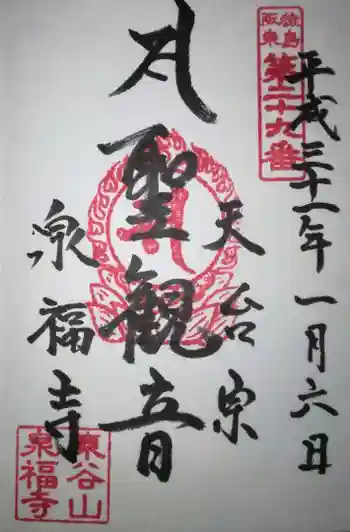 猿島
阪東
第二十九番
平成三十一年一月六日
天台宗
聖観音
泉福寺
東谷山
泉福寺